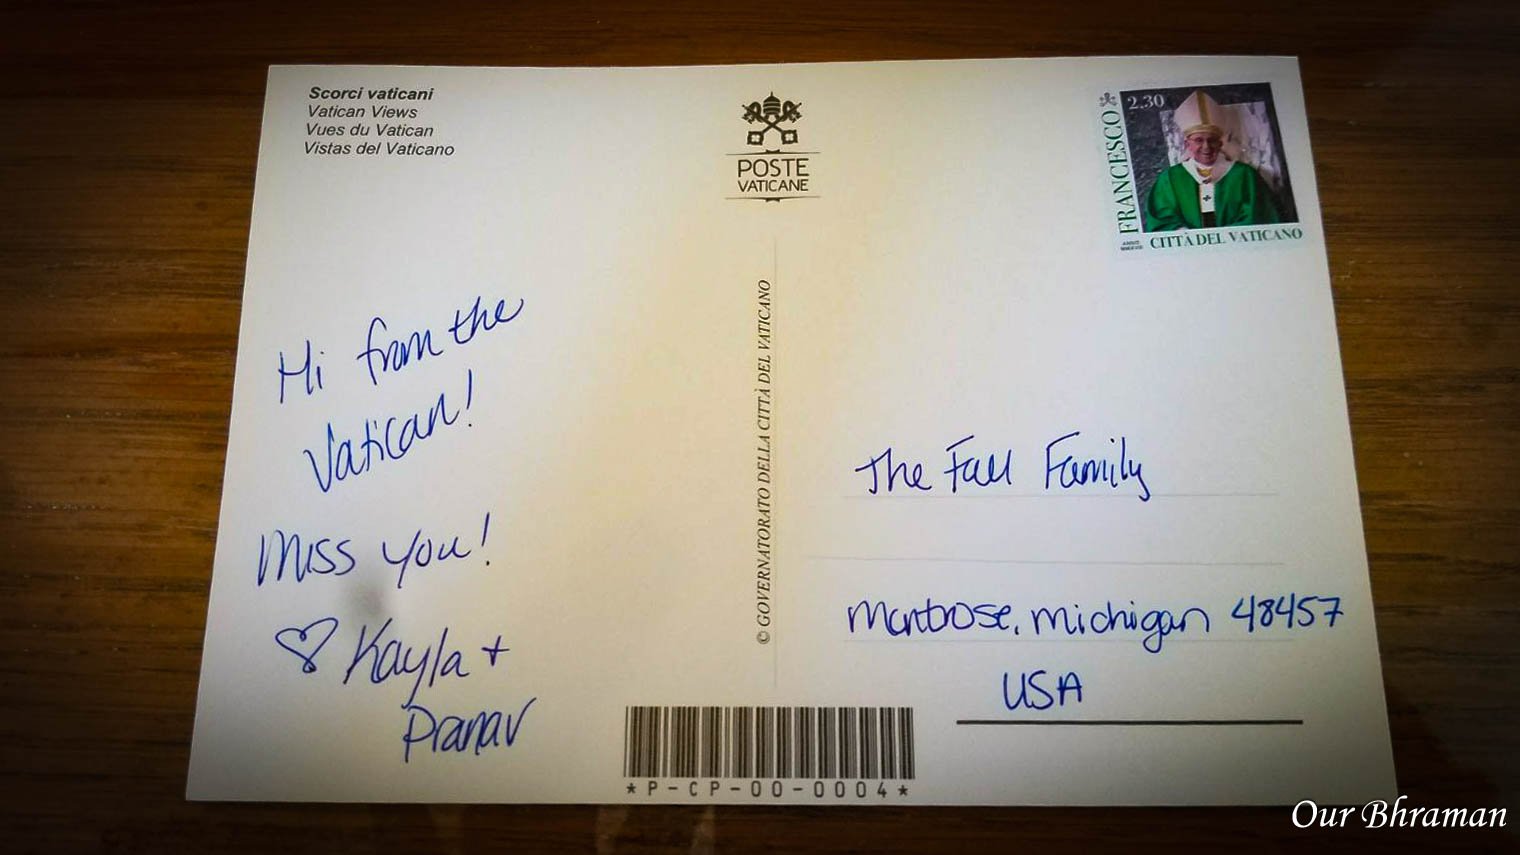 Scorci vaticani
Vatican Views
Vues du Vatican
Vistas del Vaticano
POSTE
VATICANE
2.30
FRANCESCO
CITTÀ DEL VATICANO
Hi from the
Vatican!
Miss you!
♡ Kayla +
Pranav
© GOVERNATORATO DELLA CITTÀ DEL VATICANO
The Fall Family
Montrose, Michigan 48457
USA
*P-CP-00-0004*
Our Bhraman